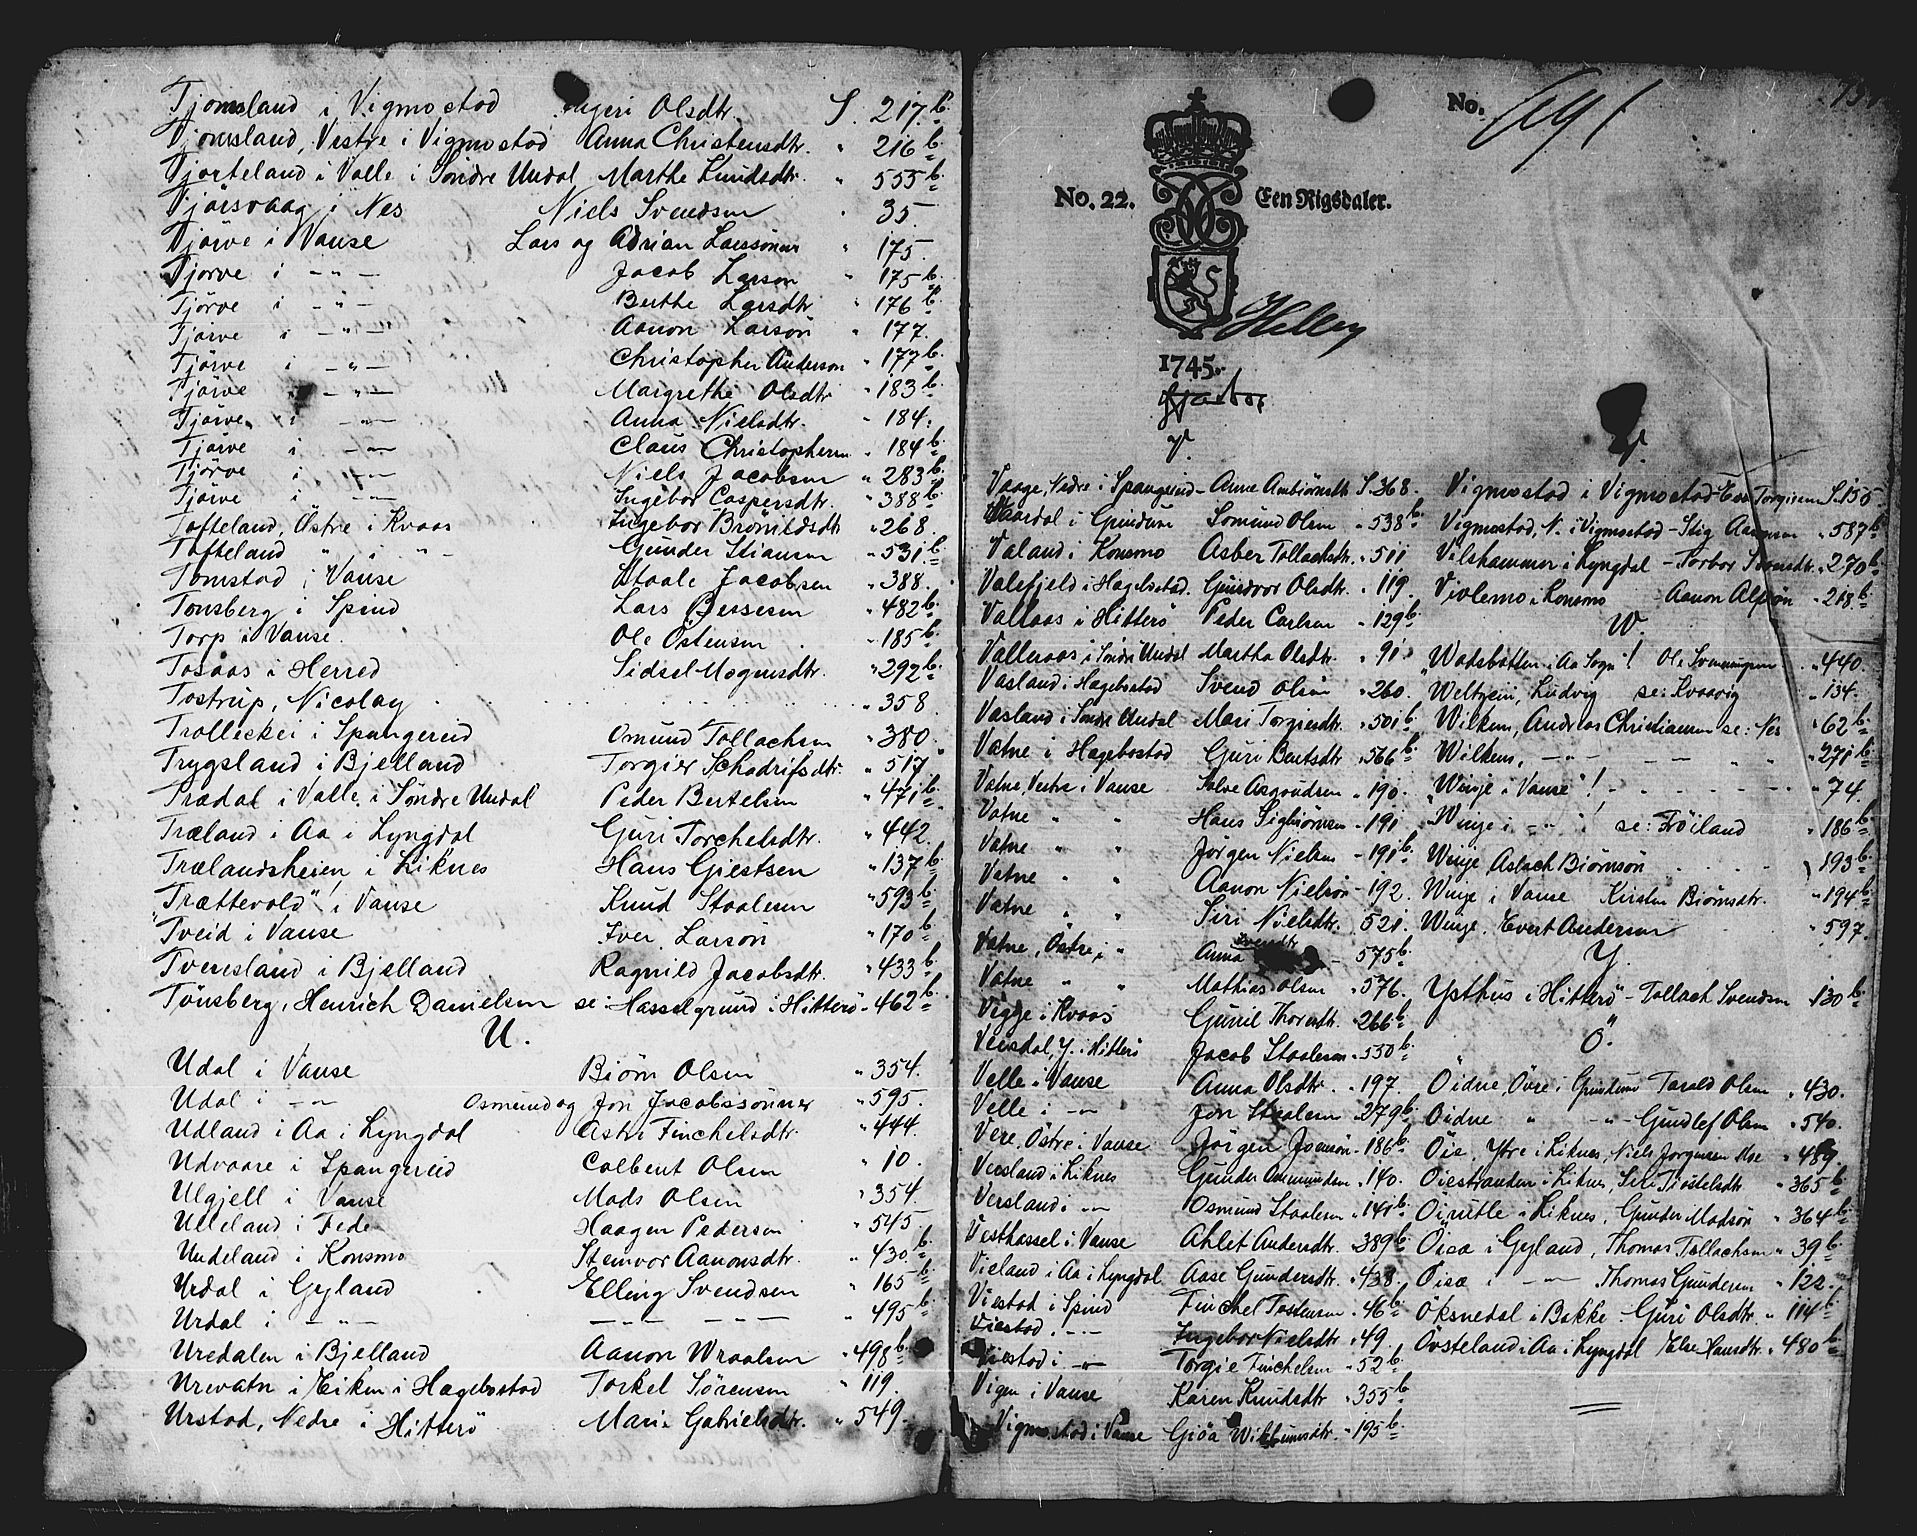 Tjomsland i Vigmostad Ingeri Olsdtr. S. 217.b
Tjomsland, Vestre i Vigmostad Anna Christensdtr. " 216 b
Tjorteland i Valle i Söndre Undal Marthe Knudsdtr. " 555 b
Tjørsvaag i Nes Niels Svendsen " 35.
Tjørve i Vanse Lars og Adrian Larssönner " 175.
Tjørve i — " — Jacob Larsön " 175 b
Tjörve i — " — Berthe Larsdtr " 176 b
Tjörve i — " — Aanon Larsön " 177.
Tjörve i — " — Christopher Anderson " 177 b
Tjörve i — " — Margrethe Olsdtr " 183 b
Tjörve i — " — Anna Nielsdtr. " 184.
Tjörve i — " — Claus Christophersen " 184 b
Tjörve i — " — Niels Jacobsen " 283 b
Tjörve i — " — Ingebor Caspersdtr. " 388 b
Tofteland, Östre i Kvaas Ingebor Brönildsdtr " 268.
Tofteland " " — " — Gunder Stiansen " 531 b
Tomstad i Vanse Staale Jacobsen " 388.
Tonsberg i Spind Lars Bersesen " 482 b
Torp i Vanse. Ole Östensen " 185 b
Tosaas i Herred Sidsel Mognusdtr. " 292 b
Tostrup, Nicolay " 358
Trolleskei i Spangereid Omund Tollachsen " 380.
Trygsland i Bjelland Torgier Schadrifsdtr. " 517
Trædal i Valle i Söndre Undal Peder Bertelsen " 471 b
Træland i Aa i Lyngdal Guri Torchelsdtr. " 442.
Trælandsheien i Liknes Hans Giestsen " 137 b
"Trættevold"! i Vanse Knud Staalesen " 593 b
Tveid i Vanse Iver Larsön " 170 b
Tveesland i Bjelland Ragnild Jacobsdtr. " 433 b
Tönsberg, Henrich Danielsen se: Hasselgrund i Hitterö " 462 b
U.
Udal i Vanse Biörn Olsen " 354.
Udal i — " — Osmund og Jon Jacobssönner " 595.
Udland i Aa i Lyngdal Astri Finchelsdtr. " 444.
Udvaare i Spangereid Colbent Olsen " 10.
Ulgjell i Vanse Mads Olsen " 354.
Ulleland i Feden Haagen Pedersen " 545.
Undeland i Konsmo Stenvor Aanonsdtr. " 430 b
Urdal i Gyland Elling Svendsen " 165 b
Urdal i — " — — " — — " — " 495 b
Uredalen i Bjelland Aanon Wraalsen " 498 b
Urevatn i Eiken i Hægebostad Torkel Sørensen " 119.
Urstad, Nedre i Hitterö Maria Gabrielsdtr. " 549.
No. 691
No. 22. Een Rigsdaler.
Helley
1745.
V.
Vaage, Nedre i Spangereid - Anne Ambiörnsdtr S. 368.
Vaardal i Grindum Lomund Olsen " 538 b
Valand i Konsmo Asber Tollachstr. " 511
Valefjeld i Hægebostad. Gundvor Olsdtr. " 119.
Vallaas i Hitterö Peder Carlsen " 129 b
Valleraas i Söndre Undal Martha Olsdtr. " 91.
Vasland i Hægebostad Svend Olsen " 260.
Vasland i Söndre Undal Mari Torgiersdtr. " 501 b
Vatne i Hægebostad Guri Bentsdtr " 566 b
Vatne, Vestre i Vanse Salve Asgoudsen " 190.
Vatne " " Hans Sigbiörnsen " 191
Vatne " " Jörgen Nielsen " 191 b
Vatne " " Aanon Nielsön " 192.
Vatne " " Siri Nielsdtr. " 521.
Vatne, Östre i " Anna Svendtr - 575 b
Vatne " " Mathias Olsen " 576.
Vigge i Kvaas Gunil Thorsdtr. " 266 b
Veisdal, Y. i Hitterö Jacob Staalesen " 550 b
Velle i Vanse Anna Olsdtr. " 197
Velle i — " — Jon Staalesen " 279 b
Vere, Östre i Vanse Jörgen Jonsön " 186 b
Versland i Liknes Gunder Ommundsen " 140.
Versland i — " — Osmund Staalesen " 141 b
Vesthassel i Vanse Ahlet Andersdtr. " 389 b
Vieland i Aa i Lyngdal Aase Gundersdtr. " 438.
Viestad i Spind Finchel Tostensen " 46 b
Viestad i — " — Ingebor Nielsdtr " 49.
Viestad i — " — Torgie Finchelsen " 52 b
Vigen i Vanse Karen Knudsdtr " 355 b
Vigmostad i Vanse Giöa Wilhumsdtr. " 195 b
V.
Vigmostad i Vigmostad - Esse Torgiersen S. 155.
Vigmostad, N. i Vigmostad - Stig Aanonsen " 587 b
Vilshammer i Lyngdal - Torbor Svensdtr. " 270 b
Violemo i Konsmo Aanon Alfsön " 218 b
W.
"Wadsbatten i Aa Sogn"! Ole Svennungsen " 440.
"Weltzein, Ludvig se: Kvaavig " 134.
Wilkens, Andreas Christiansen se: Nes " 62 b
Wilkens, — " — — — " " " 271 b
"Winje i Vanse"! " 74.
"Winje i — " — "! se: Fröiland " 186 b
Winje, Aslach Biörnsön " 193 b
Winje i Vanse Kirsten Biörnsdtr. " 194 b
Winje, Evert Andersen " 597.
Y.
Ysthus i Hitterö - Tollach Svendsen " 130 b
Ö.
Öidne, Övre i Grindum Tarald Olsen " 430.
Öidne " — " — Gundlef Olsen " 540.
Öie, Ytre i Liknes, Niels Jorgensen Mse " 489
Öiestranden i Liknes, Siri Tjöstelsdtr " 365 b
Öiuttle i Liknes, Gunder Madsön " 364 b
Öisæ i Gyland, Thomas Tollachsen " 39 b
Öisæ i — " — Thomas Gundersen " 122.
Öksnedal i Bakke - Guri Olsdtr. " 114 b
Övsteland i Aa i Lyngdal Else Hansdtr. " 480 b